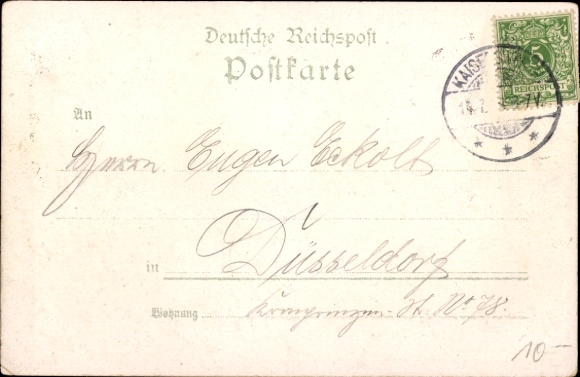 Deutsche Reichspost
Postkarte
5
REICHSPOST
An
Herrn Eugen Eckolt
in Düsseldorf
Wohnung Kronprinzen-St. No 78.
10-